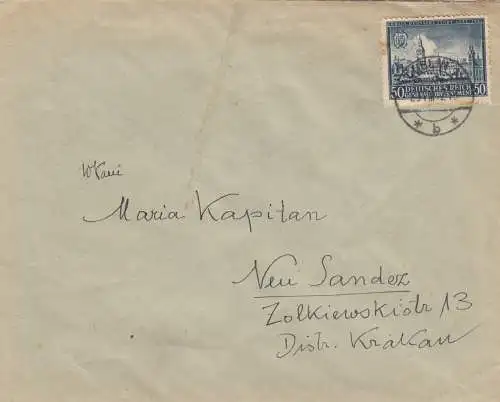 50 DEUTSCHES REICH 50
GENERALGOUVERNEMENT
b
Maria Kapitan
Neu Sandez
Zolkiewskistr 13
Distr. Krakau